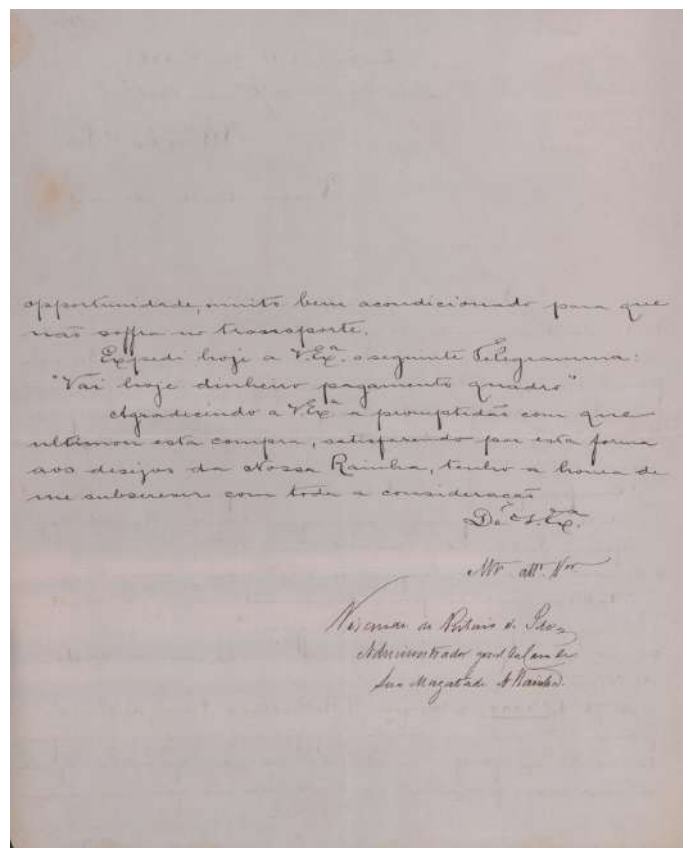 opportunidade, muito bem acondicionado para que
não soffra no transporte.
Expedi hoje a V.Ex.ª o seguinte Telegramma:
"Vai hoje dinheiro pagamento quadro"
Agradecindo a V.Ex.ª a promptidão com que
ultimou esta compra, satisfazendo por esta forma
aos desejos da Nossa Rainha, tenho a honra de
me subscrever com toda a consideração
De V.Ex.ª
Mto. attº. Vor.
Visconde de
Administrador geral da Casa de
Sua Magestade A Rainha.